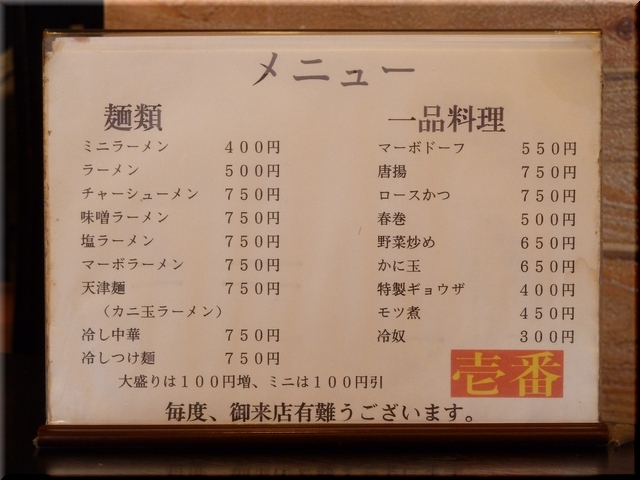 メニュー
麺類
ミニラーメン ４００円
ラーメン ５００円
チャーシューメン ７５０円
味噌ラーメン ７５０円
塩ラーメン ７５０円
マーボラーメン ７５０円
天津麺 ７５０円
（カニ玉ラーメン）
冷し中華 ７５０円
冷しつけ麺 ７５０円
一品料理
マーボドーフ ５５０円
唐揚 ７５０円
ロースかつ ７５０円
春巻 ５００円
野菜炒め ６５０円
かに玉 ６５０円
特製ギョウザ ４００円
モツ煮 ４５０円
冷奴 ３００円
大盛りは１００円増、ミニは１００円引
壱番
毎度、御来店有難うございます。